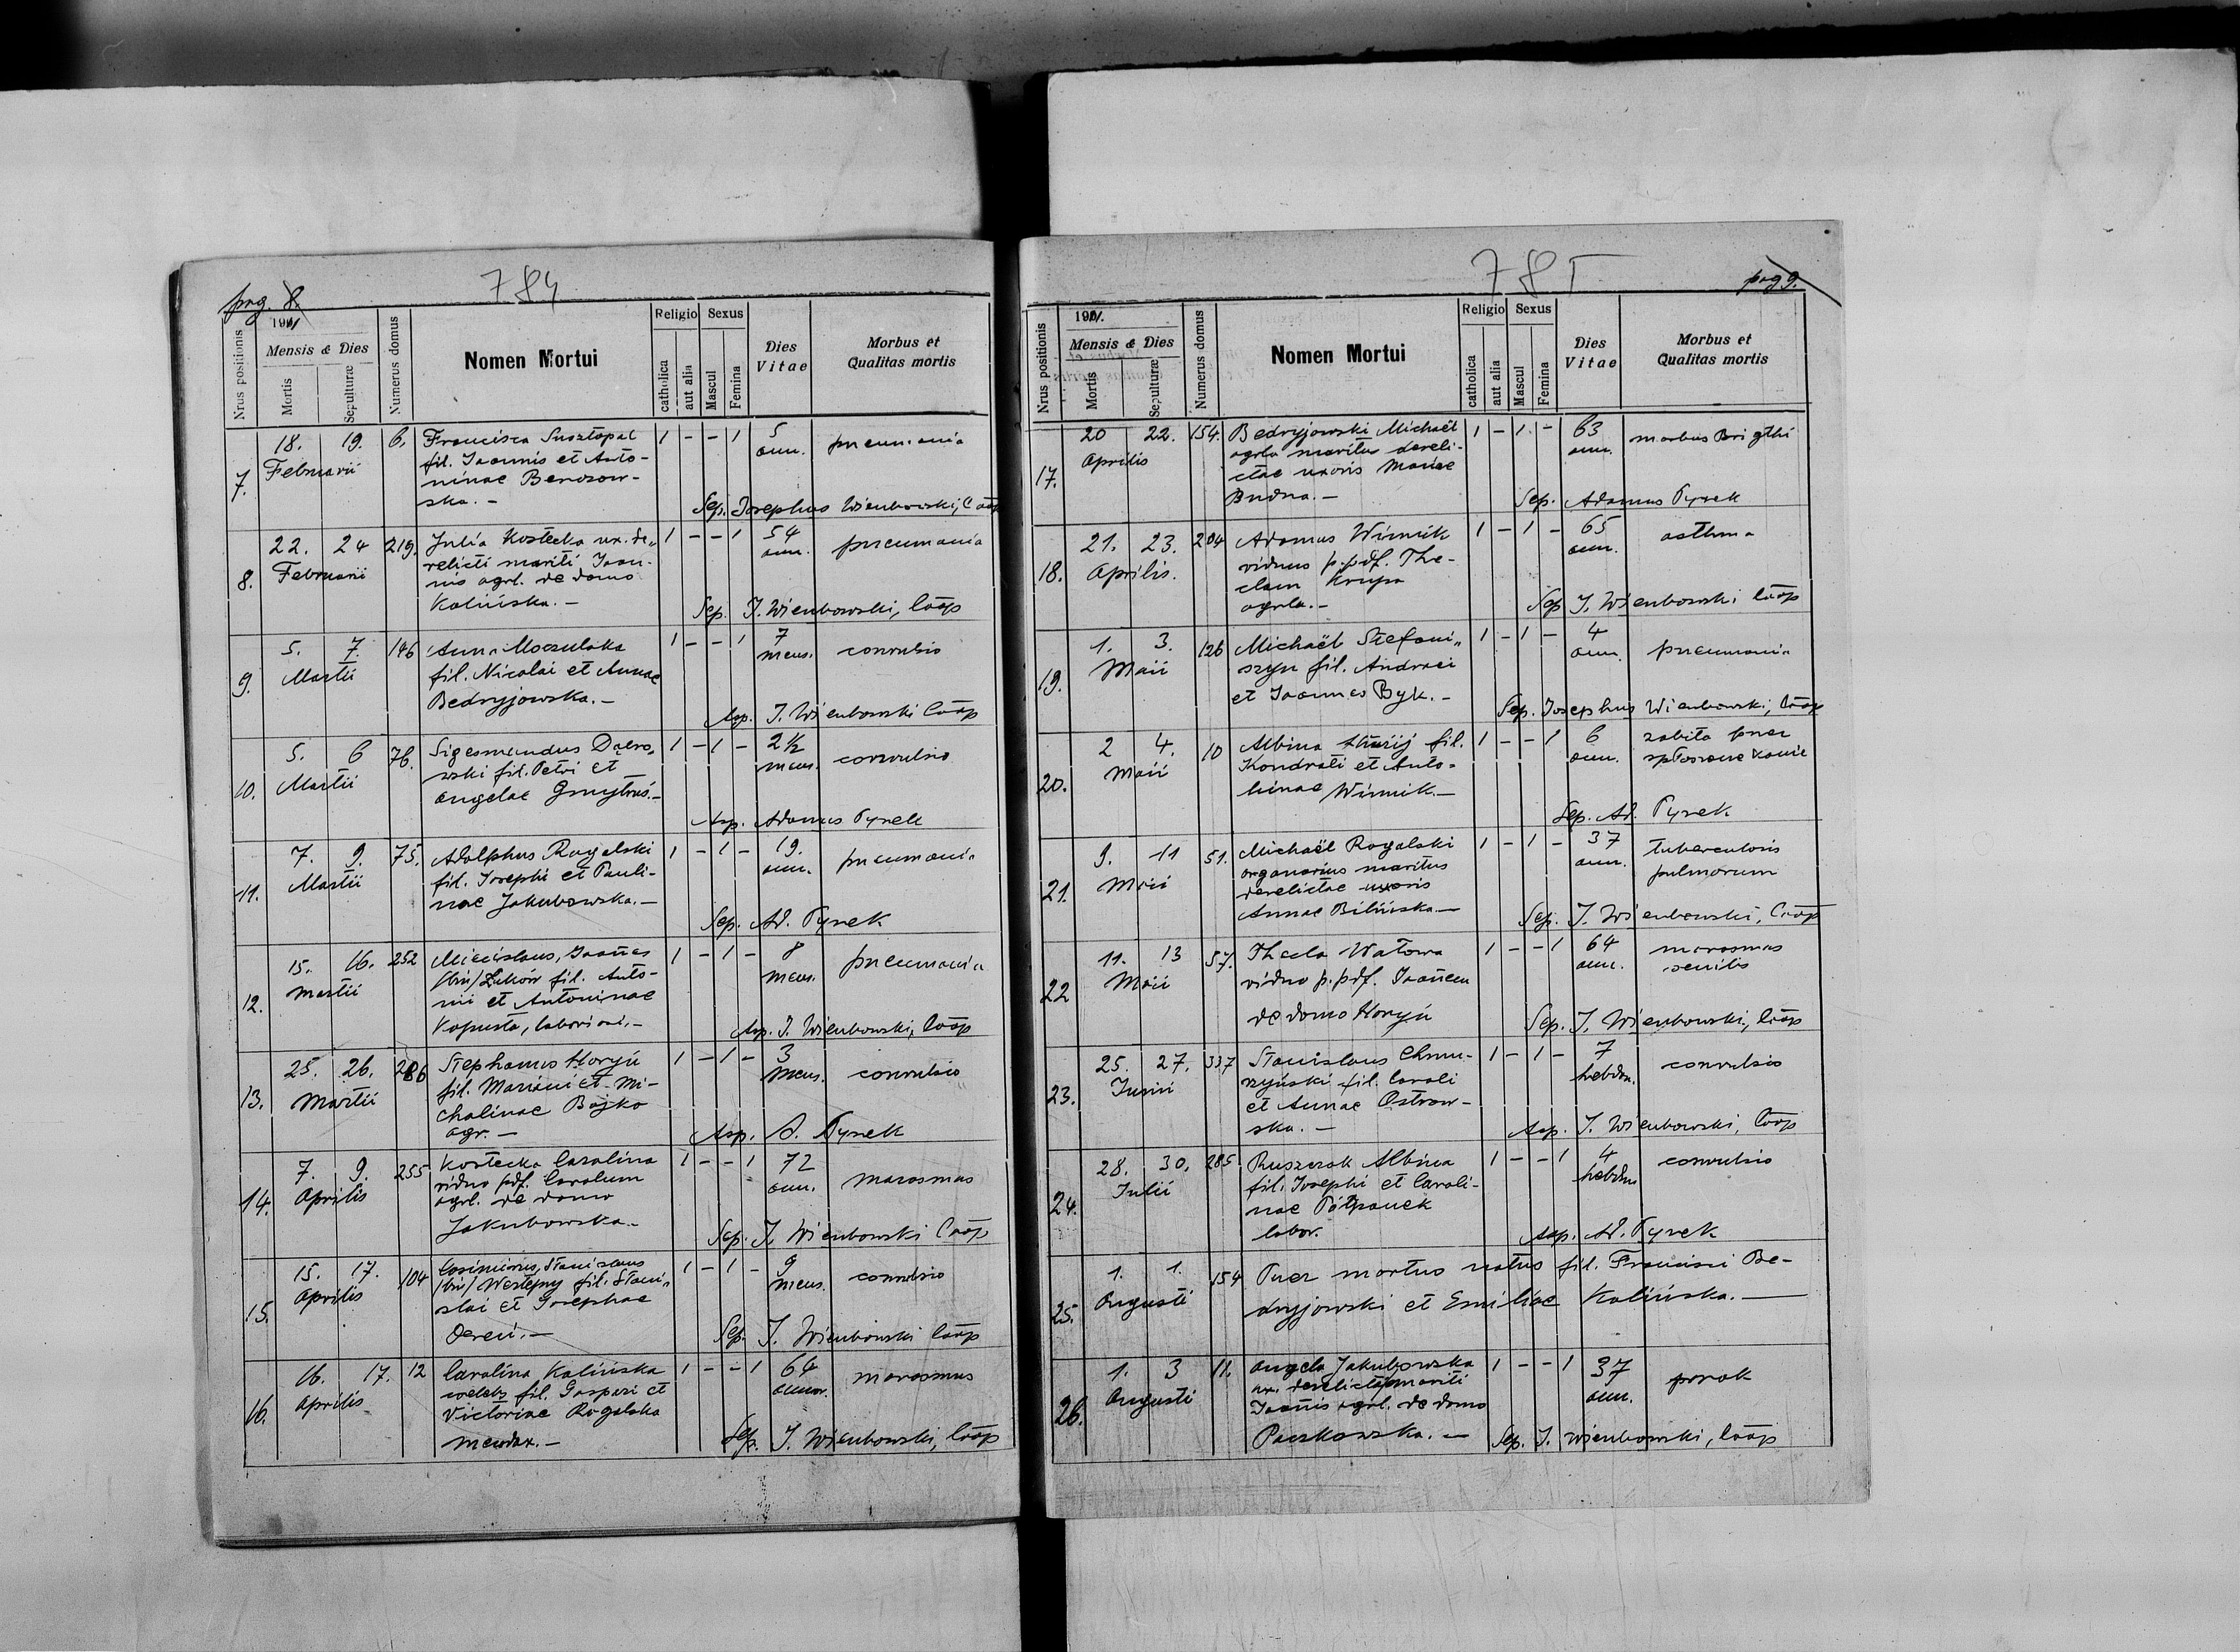 pag. 8
784
1911
Nrus positionis
Mensis & Dies
Mortis
Sepulturæ
Numerus domus
Nomen Mortui
Religio
catholica
aut alia
Sexus
Mascul
Femina
Dies Vitae
Morbus et
Qualitas mortis
7. 18. 19. Februarii 6. Francisca Susztopal 1 - - 1 5 ann. pneumonia
fil. Joannis et Anto-
ninae Berozow-
ska. -
Sep. Josephus Wienbowski, Coop
8. 22. 24 Februarii 219. Julia Kostecka ux. de-
relicti mariti Joan-
nis agrl. de domo
Kalińska. -
1 - - 1 54 ann. pneumonia
Sep. J. Wienbowski, Coop
9. 5. 7. Martii 146 Anna Moczulska
fil. Nicolai et Annae
Bedryjowska. -
1 - - 1 7 mens. convulsio
Asp. J. Wienbowski Coop
10. 5. 6 Martii 76. Sigesmundus Dąbro-
wski fil. Petri et
Angelae Gmytruś. -
1 - 1 - 2½ mens. convulsio
Asp. Adamus Pyrek
11. 7. 9. Martii 75. Adolphus Rogalski
fil. Josephi et Pauli-
nae Jakubowska. -
1 - 1 - 19. ann. pneumonia
Sep. Ad. Pyrek
12. 15. 16. Martii 252 Miecislaus, Joañes
(bin) Żuków fil. Anto-
nii et Antoninae
Kapusta,
1 - 1 - 8 mens. pneumonia
Asp. J. Wienbowski, Coop
13. 25. 26. Martii 286 Stephanus Horyń
fil. Mariani et Mi-
chalinae Bojko
agr. -
1 - 1 - 3 mens. convulsio
Asp. A. Pyrek
14. 7. 9. Aprilis 255 Kostecka Carolina
vidua pdf. Carolum
agrl. de domo
Jakubowska. -
1 - - 1 72 ann. marasmus
Sep. J. Wienbowski Coop
15. 15. 17. Aprilis 104 Casimirus, Stanislaus
(bin) Wertepny fil. Stani-
slai et Josephae
Dereń. -
1 - 1 - 9 mens. convulsio
Sep. J. Wienbowski Coop
16. 16. 17. Aprilis 12 Carolina Kalińska
coelebs fil. Gaspari et
Victoriae Rogalska
mendax. -
1 - - 1 64 annor. marasmus
Sep. J. Wienbowski, Coop
785
pag 9.
1911.
Nrus positionis
Mensis & Dies
Mortis
Sepulturæ
Numerus domus
Nomen Mortui
Religio
catholica
aut alia
Sexus
Mascul
Femina
Dies Vitae
Morbus et
Qualitas mortis
17. 20 22. Aprilis 154. Bedryjowski Michaël
agrla maritus dereli-
ctae uxoris Mariae
Budna. -
1 - 1. - 63 ann. morbus Brigthi
Sep. Adamus Pyrek
18. 21. 23. Aprilis. 204 Adamus Winnik
viduus p. pdf. The-
clam Krupa
agrla. -
1 - 1 - 65 ann. asthma
Sep J. Wienbowski Coop
19. 1. 3. Maii 126 Michaël Stefani-
szyn fil. Andreei
et Joannes Byk. -
1 - 1 - 4 ann. pneumonia
Sep. Josephus Wienbowski, Coop
20. 2 4. Maii 10 Albina fil.
Kondrati et Anto-
ninae Winnik. -
1 - - 1 6 ann. zabita przez
spłoszone konie
Sep. Ad. Pyrek
21. 9. 11 Maii 51. Michaël Rogalski
organarius maritus
derelictae uxoris
Annae Bilińska -
1 - 1 - 37 ann. tuberculosis
pulmorum
Sep. J. Wienbowski, Coop
22 11. 13 Maii 57. Thecla Watowa
vidua p. pdf. Joañem
de domo Horyń
1 - - 1 64 ann. marasmus
senilis
Sep. J. Wienbowski, Coop
23. 25. 27. Junii 337 Stanislaus Chmu-
rzyński fil. Caroli
et Annae Ostrow-
ska. -
1 - 1 - 7 hebdom. convulsio
Asp. J. Wienbowski, Coop
24. 28. 30. Julii 285 Ruszczak Albina
fil. Josephi et Caroli-
nae Półpanek
labor.
1 - - 1 4 hebdom convulsio
Asp. Ad. Pyrek
25. 1. 1. Augusti 154 Puer mortus natus fil. Francisci Be-
dryjowski et Emiliae Kalińska. -
26. 1. 3 Augusti 11. Angela Jakubowska
ux. derelicta mariti
Joañis agrl. de domo
Paczkowska. -
1 - - 1 37 ann. porok
Sep. J. Wienbowski, Coop